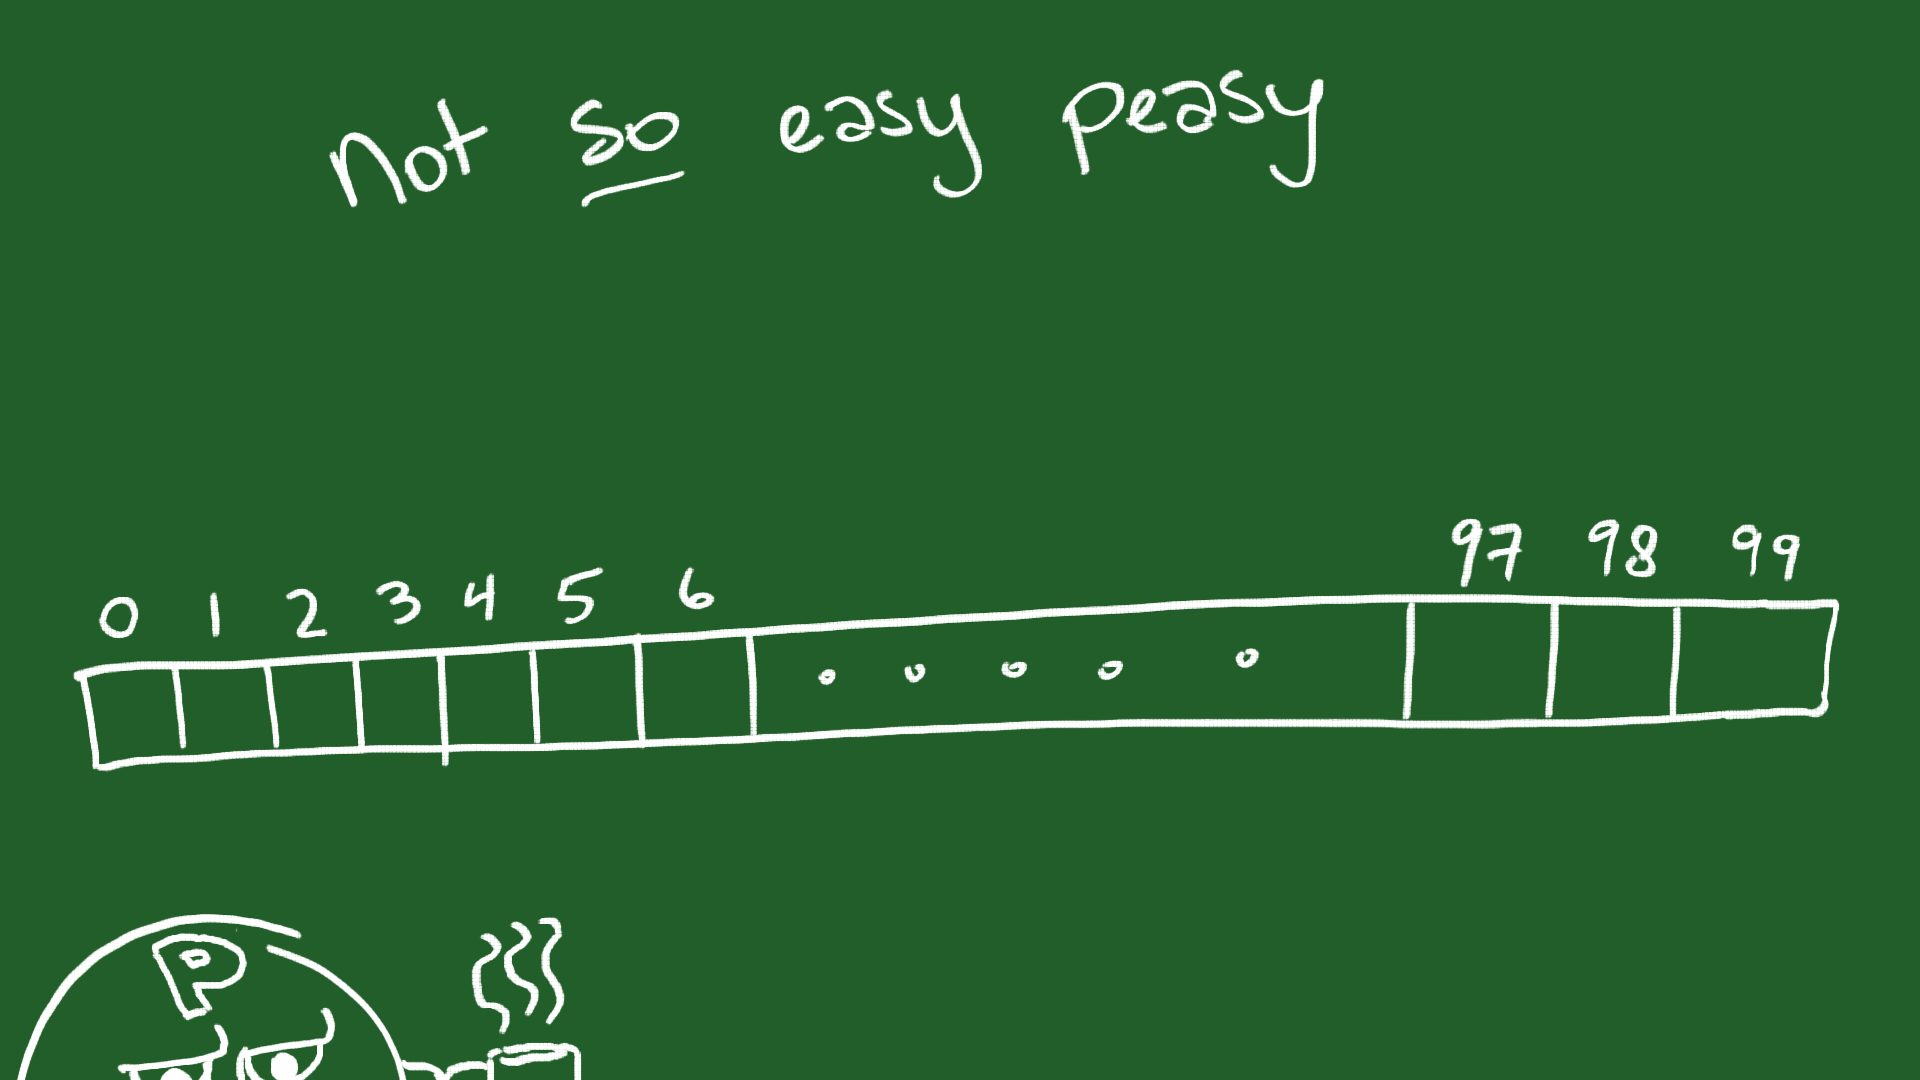 not so easy peasy
0 1 2 3 4 5 6 97 98 99
P